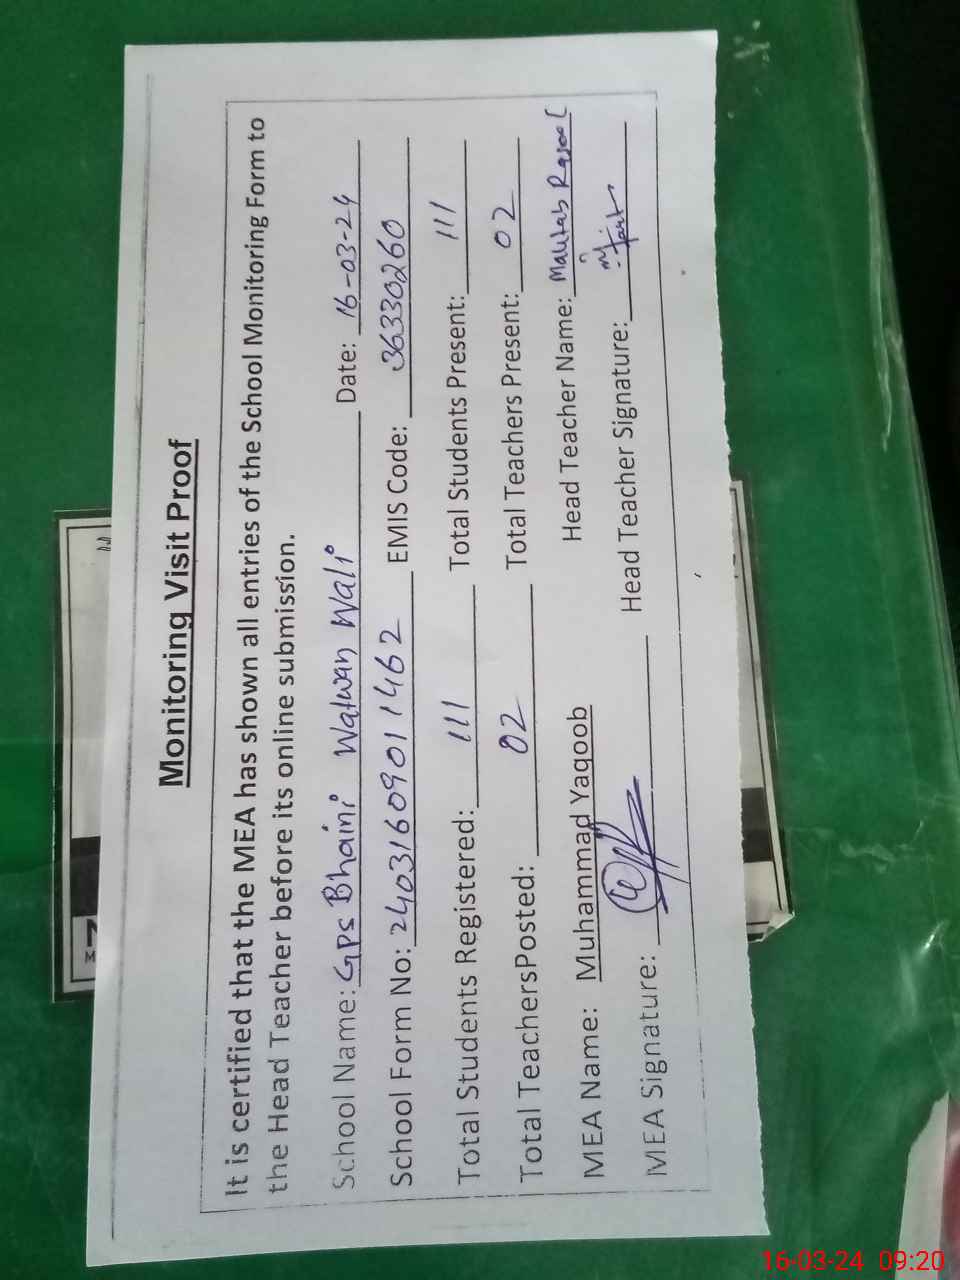 Monitoring Visit Proof
It is certified that the MEA has shown all entries of the School Monitoring Form to
the Head Teacher before its online submission.
School Name: GPS Bhaini Watwan Wali Date: 16-03-24
School Form No: 24031609011462 EMIS Code: 36330260
Total Students Registered: 111 Total Students Present: 111
Total TeachersPosted: 02 Total Teachers Present: 02
MEA Name: Muhammad Yaqoob Head Teacher Name:
MEA Signature: Head Teacher Signature:
16-03-24 09:20